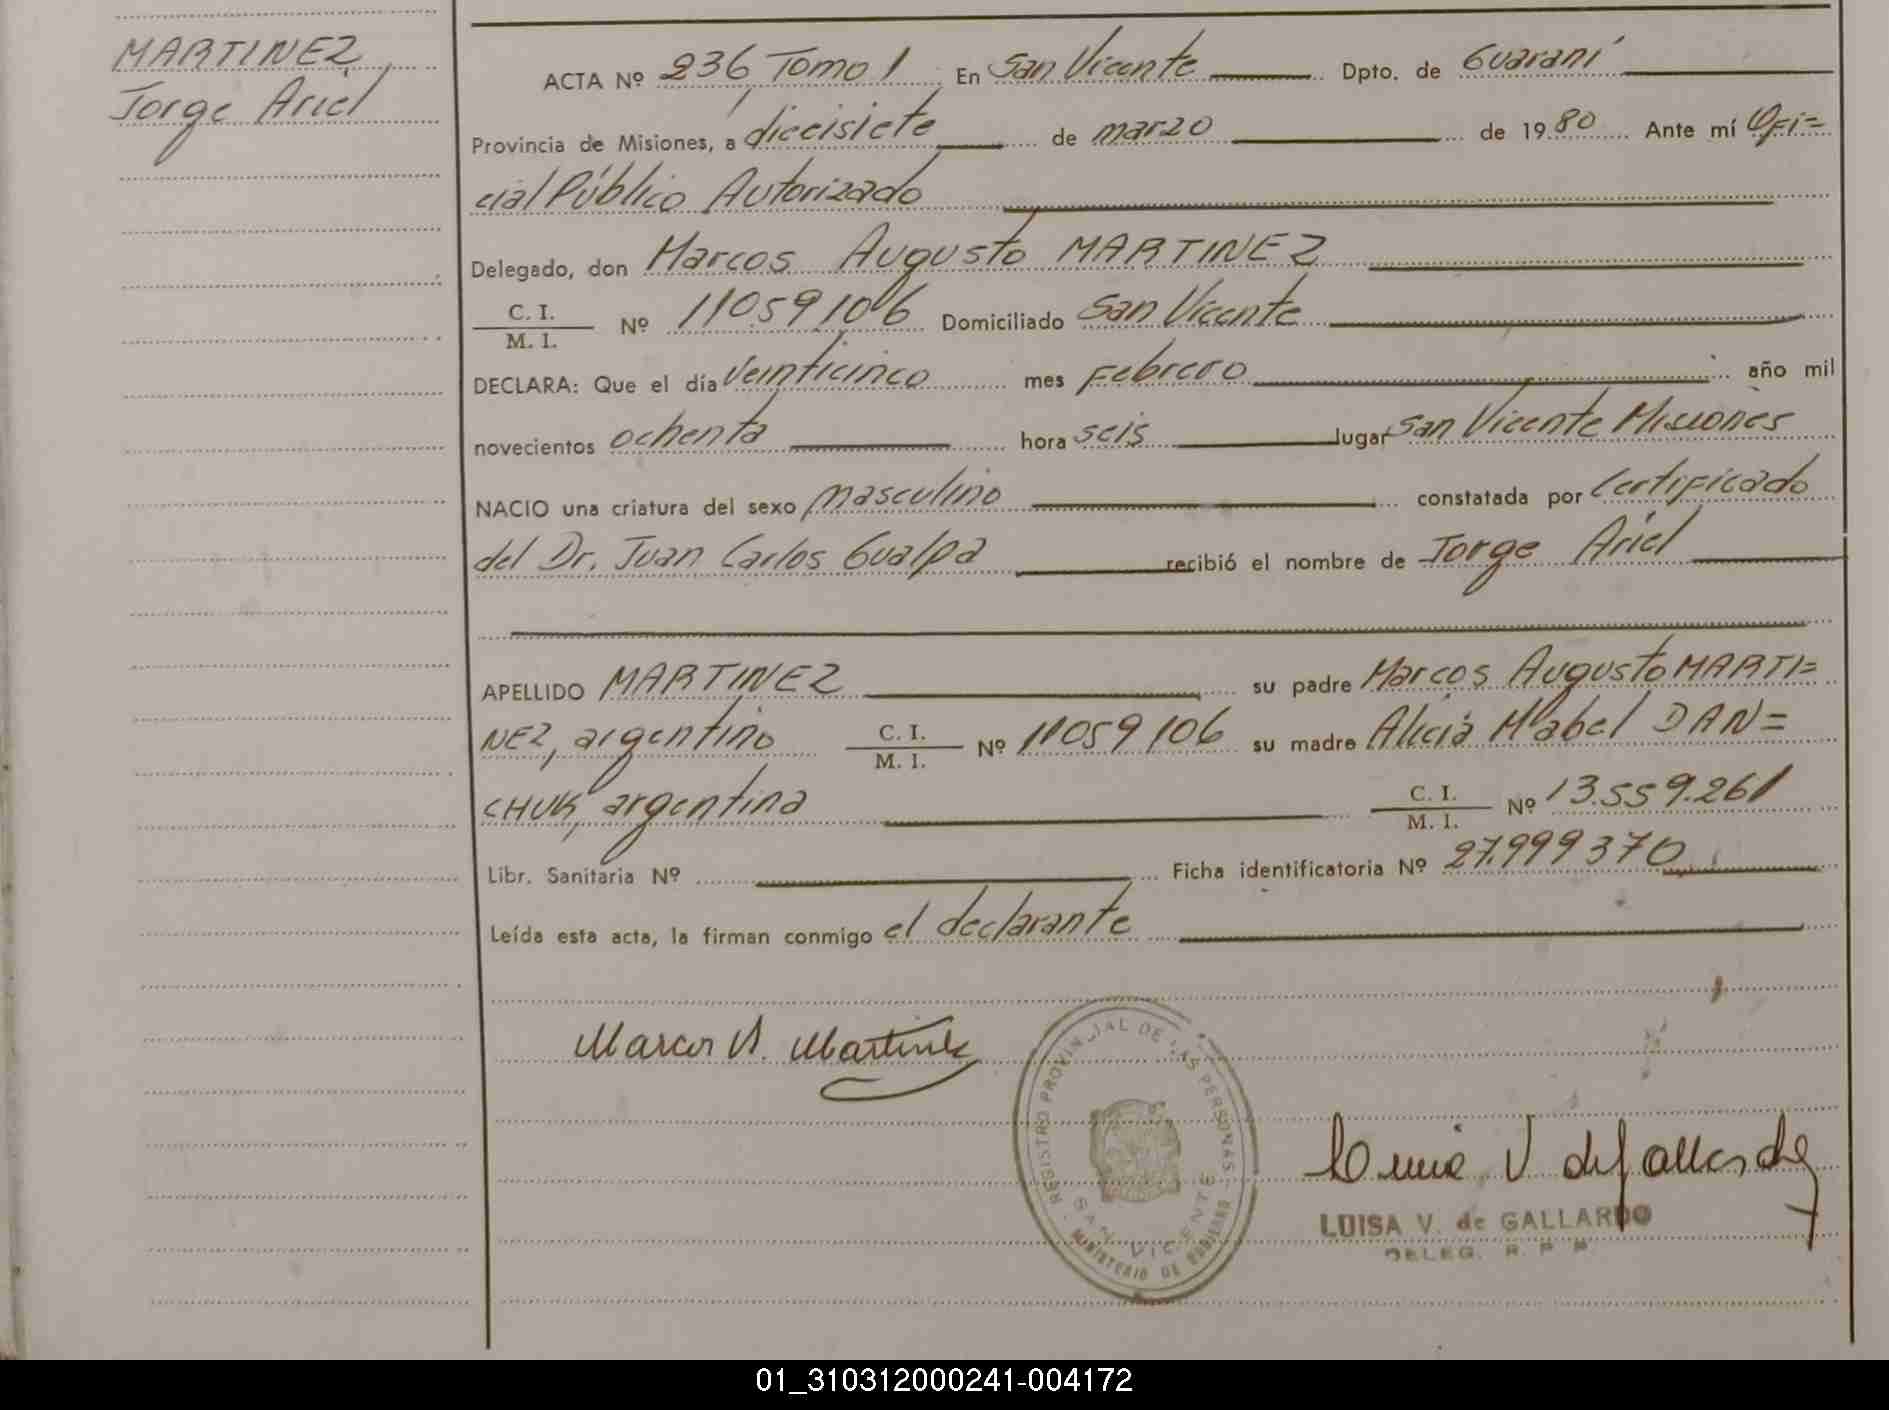 MARTINEZ,
Jorge Ariel
ACTA Nº 236 Tomo 1 En San Vicente Dpto. de Guaraní
Provincia de Misiones, a diecisiete de marzo de 1980 Ante mí Ofi=
cial Público Autorizado
Delegado, don Marcos Augusto MARTINEZ
C. I.
M. I. Nº 11059106 Domiciliado San Vicente
DECLARA: Que el día veinticinco mes Febrero año mil
novecientos ochenta hora seis lugar San Vicente Misiones
NACIO una criatura del sexo masculino constatada por Certificado
del Dr. Juan Carlos Gualpa recibió el nombre de Jorge Ariel
APELLIDO MARTINEZ su padre Marcos Augusto MARTI=
NEZ, argentino C. I. M. I. Nº 11059106 su madre Alicia Mabel DAN=
CHUK, argentina C. I. M. I. Nº 13.559.261
Libr. Sanitaria Nº Ficha identificatoria Nº 27.999370
Leída esta acta, la firman conmigo el declarante
Marcos A. Martinez
REGISTRO PROVINCIAL DE LAS PERSONAS
SAN VICENTE
MINISTERIO DE GOBIERNO
Luisa V de Gallardo
LUISA V. de GALLARDO
DELEG. R. P. P.
01_310312000241-004172